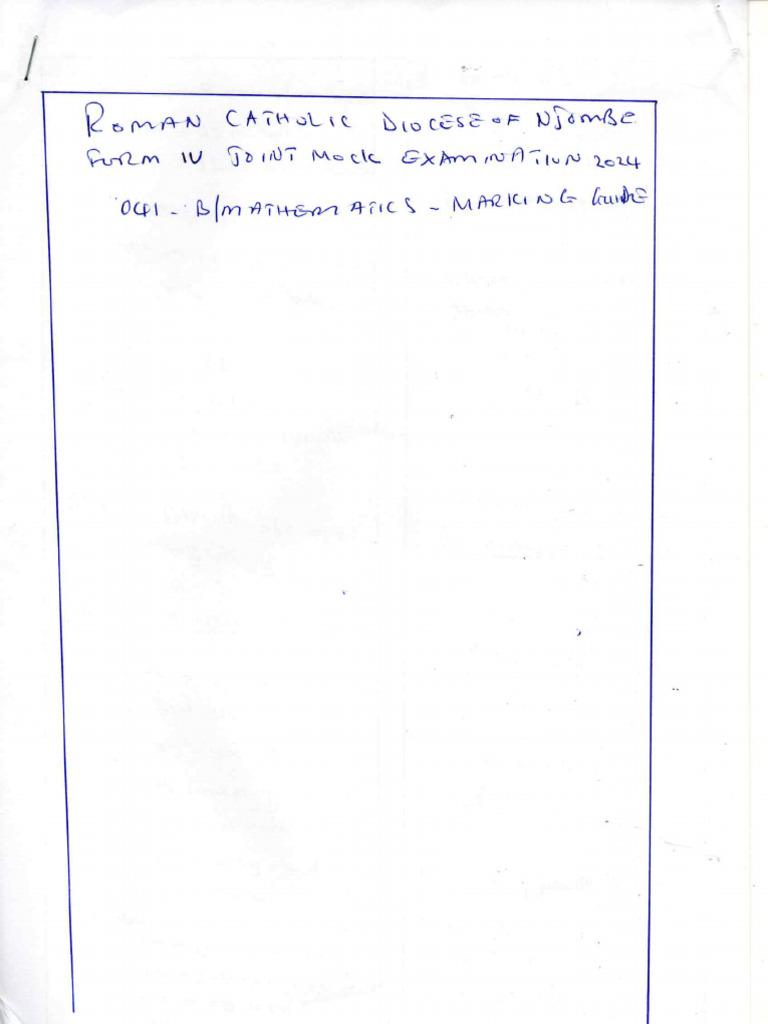 ROMAN CATHOLIC DIOCESE OF NJOMBE
FORM IV JOINT MOCK EXAMINATION 2024
041 - B/MATHEMATICS - MARKING GUIDE